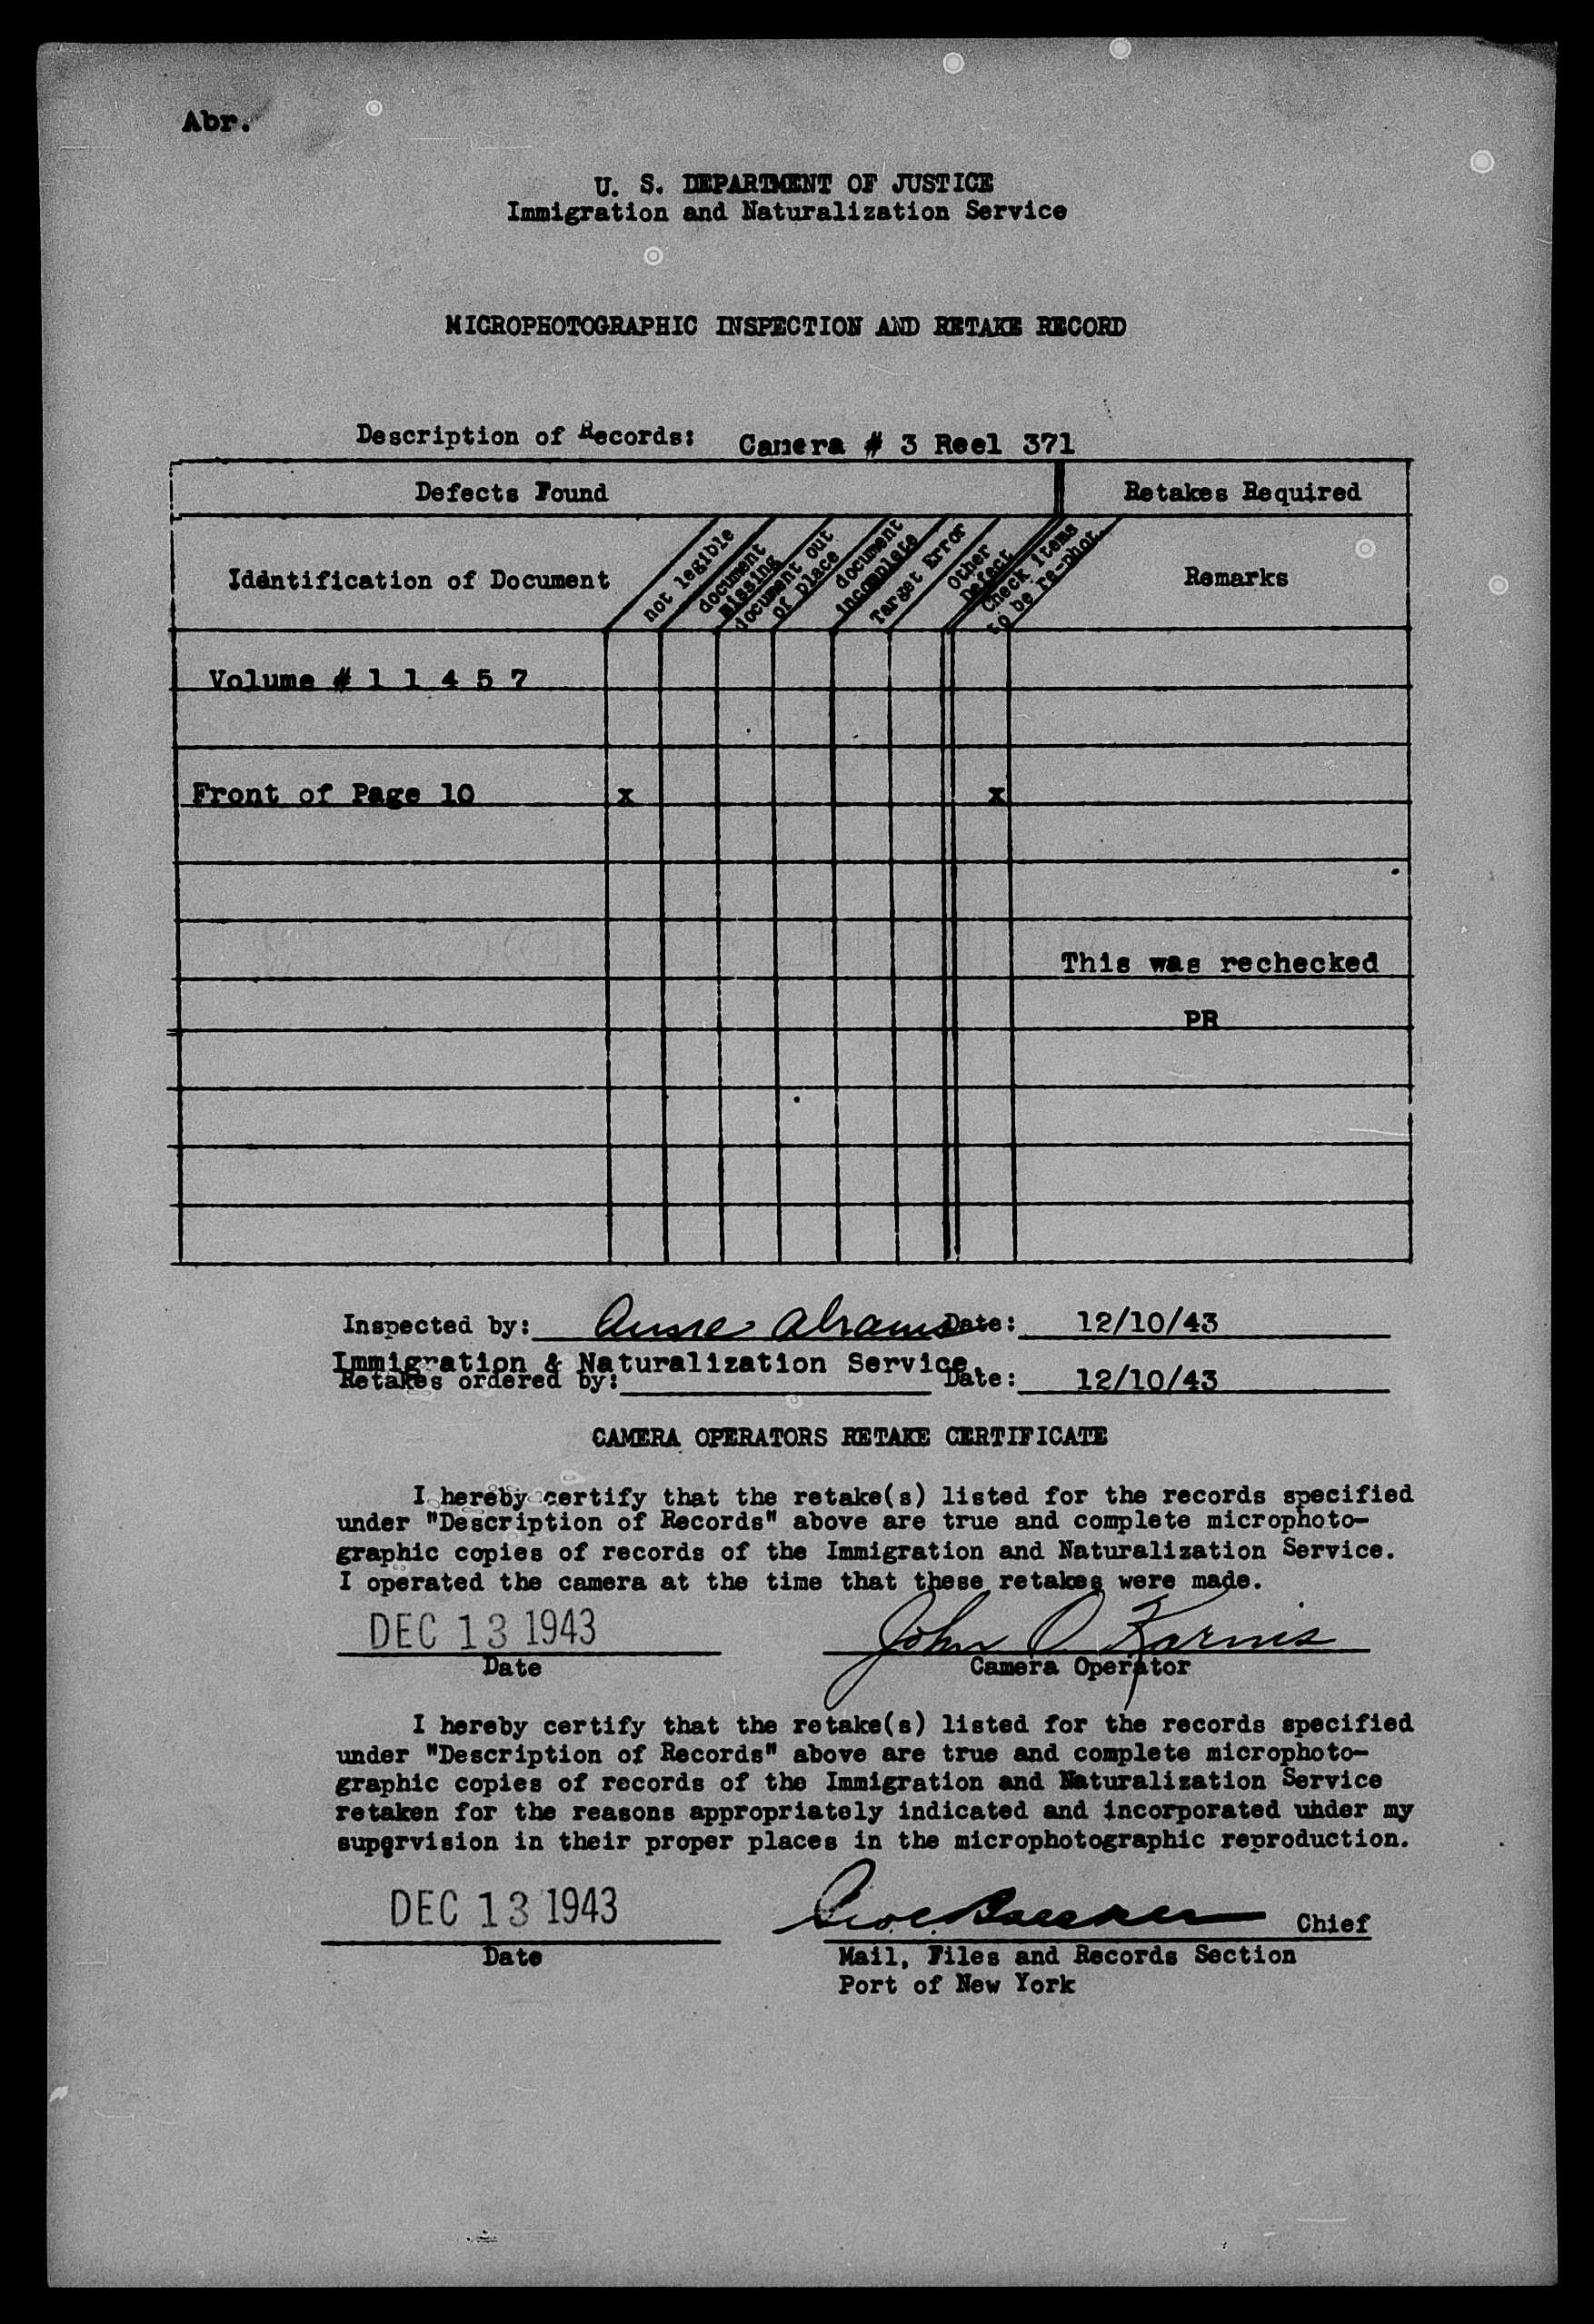 Abr.
U. S. DEPARTMENT OF JUSTICE
Immigration and Naturalization Service
MICROPHOTOGRAPHIC INSPECTION AND RETAKE RECORD
Description of Records: Camera # 3 Reel 371
Defects Found Retakes Required
Identification of Document
not legible
document missing
document out of place
document incomplete
Target Error
Other Defect
Check items to be re-phot.
Remarks
Volume # 1 1 4 5 7
Front of Page 10 x x
This was rechecked
PR
Inspected by: Abrams Date: 12/10/43
Immigration & Naturalization Service
Retakes ordered by: Date: 12/10/43
CAMERA OPERATORS RETAKE CERTIFICATE
I hereby certify that the retake(s) listed for the records specified
under "Description of Records" above are true and complete microphoto-
graphic copies of records of the Immigration and Naturalization Service.
I operated the camera at the time that these retakes were made.
DEC 13 1943 John O. Karnis
Date Camera Operator
I hereby certify that the retake(s) listed for the records specified
under "Description of Records" above are true and complete microphoto-
graphic copies of records of the Immigration and Naturalization Service
retaken for the reasons appropriately indicated and incorporated uhder my
supervision in their proper places in the microphotographic reproduction.
DEC 13 1943 Chief
Date Mail, Files and Records Section
Port of New York